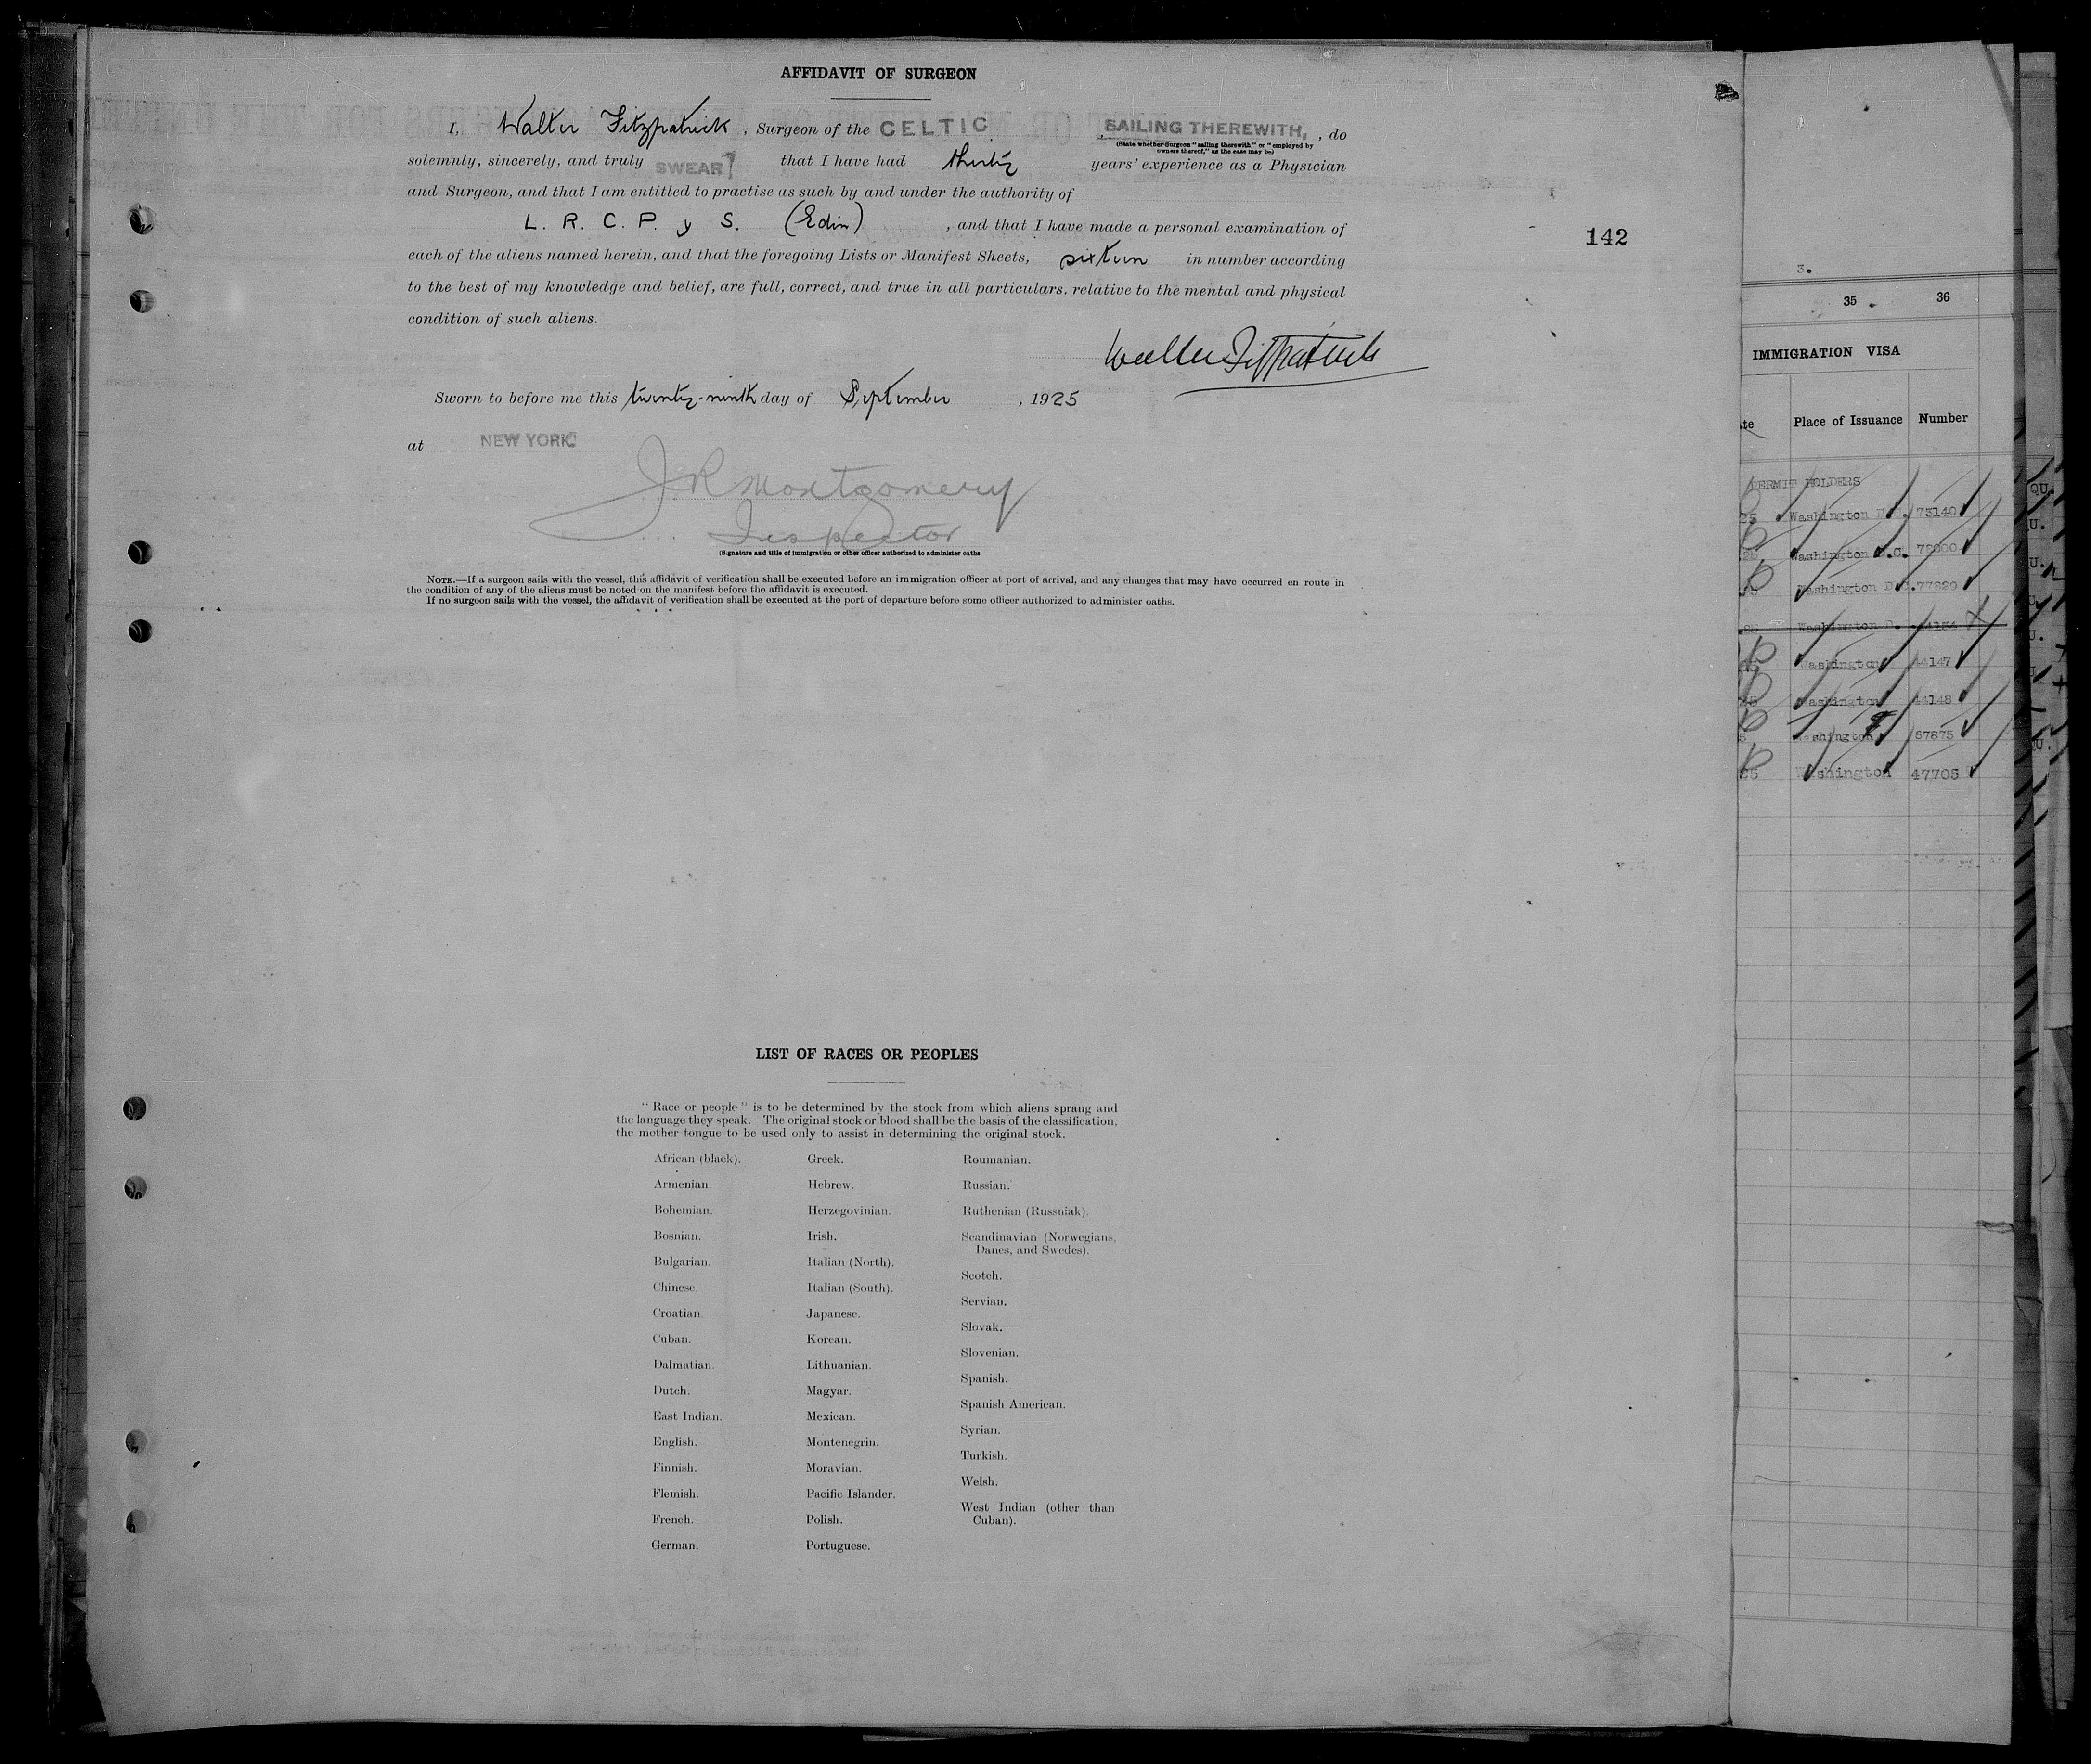 AFFIDAVIT OF SURGEON
I, Walter Fitzpatrick, Surgeon of the CELTIC, SAILING THEREWITH, , do
(State whether Surgeon "sailing therewith" or "employed by
owners thereof," as the case may be)
solemnly, sincerely, and truly SWEAR that I have had thirty years' experience as a Physician
and Surgeon, and that I am entitled to practise as such by and under the authority of
L. R. C. P. y S. (Edin) , and that I have made a personal examination of
each of the aliens named herein, and that the foregoing Lists or Manifest Sheets, sixteen in number according
to the best of my knowledge and belief, are full, correct, and true in all particulars. relative to the mental and physical
condition of such aliens.
Walter Fitzpatrick
Sworn to before me this twenty-ninth day of September , 1925
at NEW YORK
J R Montgomery
Inspector
(Signature and title of immigration or other officer authorized to administer oaths
NOTE.—If a surgeon sails with the vessel, this affidavit of verification shall be executed before an immigration officer at port of arrival, and any changes that may have occurred en route in
the condition of any of the aliens must be noted on the manifest before the affidavit is executed.
If no surgeon sails with the vessel, the affidavit of verification shall be executed at the port of departure before some officer authorized to administer oaths.
142
LIST OF RACES OR PEOPLES
"Race or people" is to be determined by the stock from which aliens sprang and
the language they speak. The original stock or blood shall be the basis of the classification,
the mother tongue to be used only to assist in determining the original stock.
African (black).
Armenian.
Bohemian.
Bosnian.
Bulgarian.
Chinese.
Croatian.
Cuban.
Dalmatian.
Dutch.
East Indian.
English.
Finnish.
Flemish.
French.
German.
Greek.
Hebrew.
Herzegovinian.
Irish.
Italian (North).
Italian (South).
Japanese.
Korean.
Lithuanian.
Magyar.
Mexican.
Montenegrin.
Moravian.
Pacific Islander.
Polish.
Portuguese.
Roumanian.
Russian.
Ruthenian (Russniak).
Scandinavian (Norwegians,
Danes, and Swedes).
Scotch.
Servian.
Slovak.
Slovenian.
Spanish.
Spanish American.
Syrian.
Turkish.
Welsh.
West Indian (other than
Cuban).
3.
35 36
IMMIGRATION VISA
Place of Issuance Number
PERMIT HOLDERS
Washington 73140
Washington D.C.
Washington
Washington
Washington 44147
Washington 44148
Washington 67875
Washington 47705